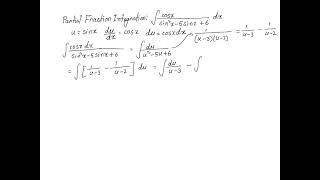 Partial Fraction Integration: ∫ cosx / (sin²x - 5sinx + 6) dx
u = sinx du/dx = cosx du = cosx dx
∫ cosx dx / (sin²x - 5sinx + 6) = ∫ du / (u² - 5u + 6) 1 / ((u-3)(u-2)) = 1/(u-3) - 1/(u-2)
= ∫ [ 1/(u-3) - 1/(u-2) ] du = ∫ du/(u-3) - ∫